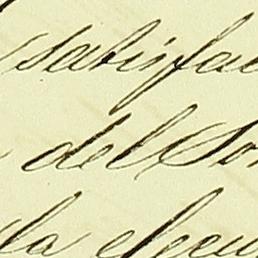 satisfac
del So
la ejecu